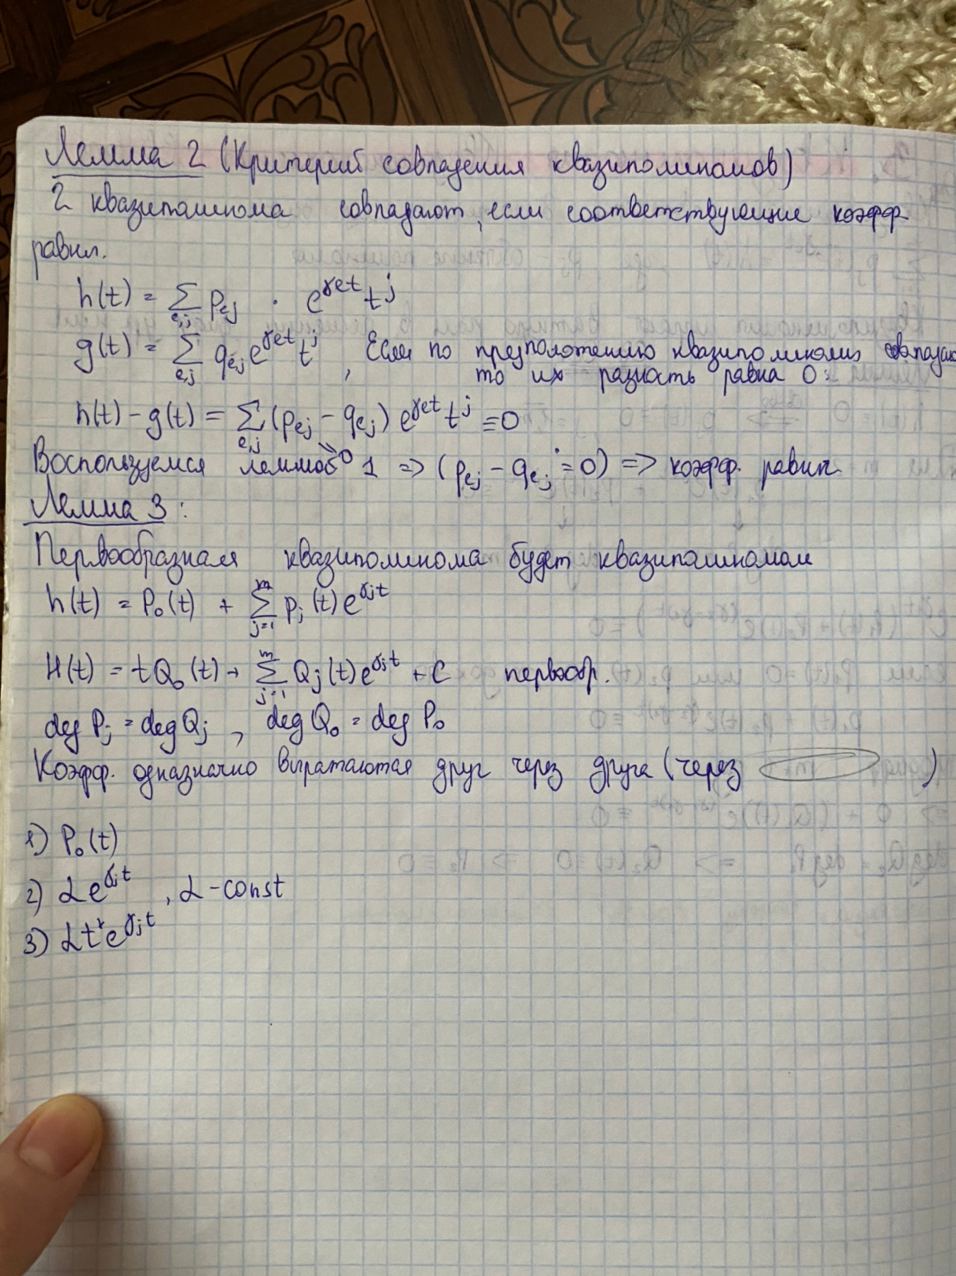 Лемма 2 (Критерий совпадения квазиполиномов)
2 квазиполинома совпадают, если соответствующие коэфф
равны.
h(t) = Σ_{e,j} p_{ej} · e^{γet} t^j
g(t) = Σ_{e,j} q_{ej} e^{γet} t^j , Если по предположению квазиполиномы совпадают
то их разность равна 0:
h(t) - g(t) = Σ_{e,j} (p_{ej} - q_{ej}) e^{γet} t^j ≡ 0
Воспользуемся леммой 1 => (p_{ej} - q_{ej} = 0) => коэфф. равны
Лемма 3:
Первообразная квазиполинома будет квазиполиномом
h(t) = P₀(t) + Σ_{j=1}^{m} p_j(t) e^{γjt}
H(t) = tQ₀(t) + Σ_{j=1}^{m} Q_j(t) e^{γjt} + C первообр.
deg P_j = deg Q_j , deg Q₀ = deg P₀
Коэфф. однозначно выражаются друг через друга (через )
1) P₀(t)
2) αe^{γjt} , α - const
3) αt^r e^{γjt}